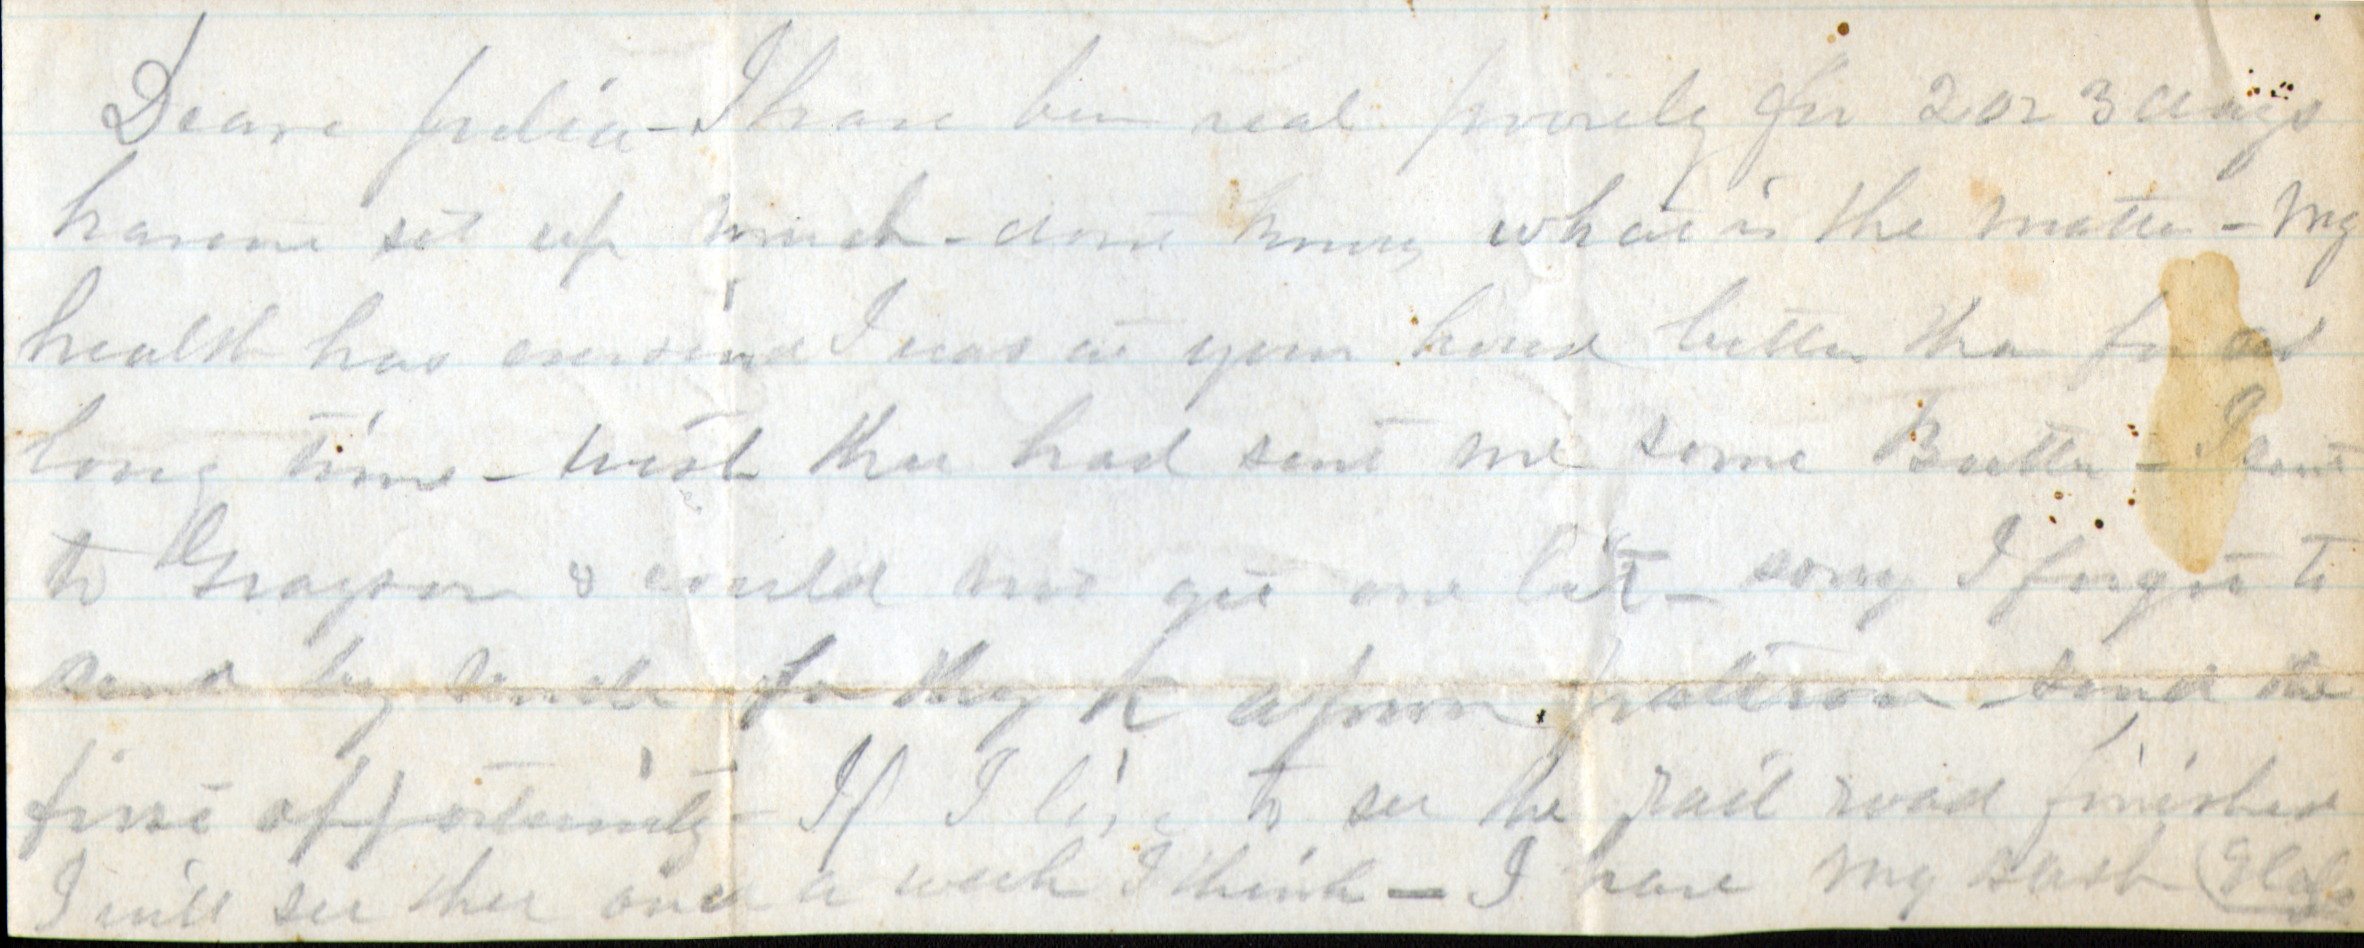 Deare Julia - I have ben real poorely for 2 or 3 days
havent set up much - dont know what is the matter - My
health has ever since I was at your house better than for a
long time - wish thee had sent me some Butter - I sent
to Grayson & could not get one bit - sorry I forgot to
send by for thy K apron pattern send the
first opportunity - If I live to see the rail road finished
I will see thee once a week I think - I have my sash